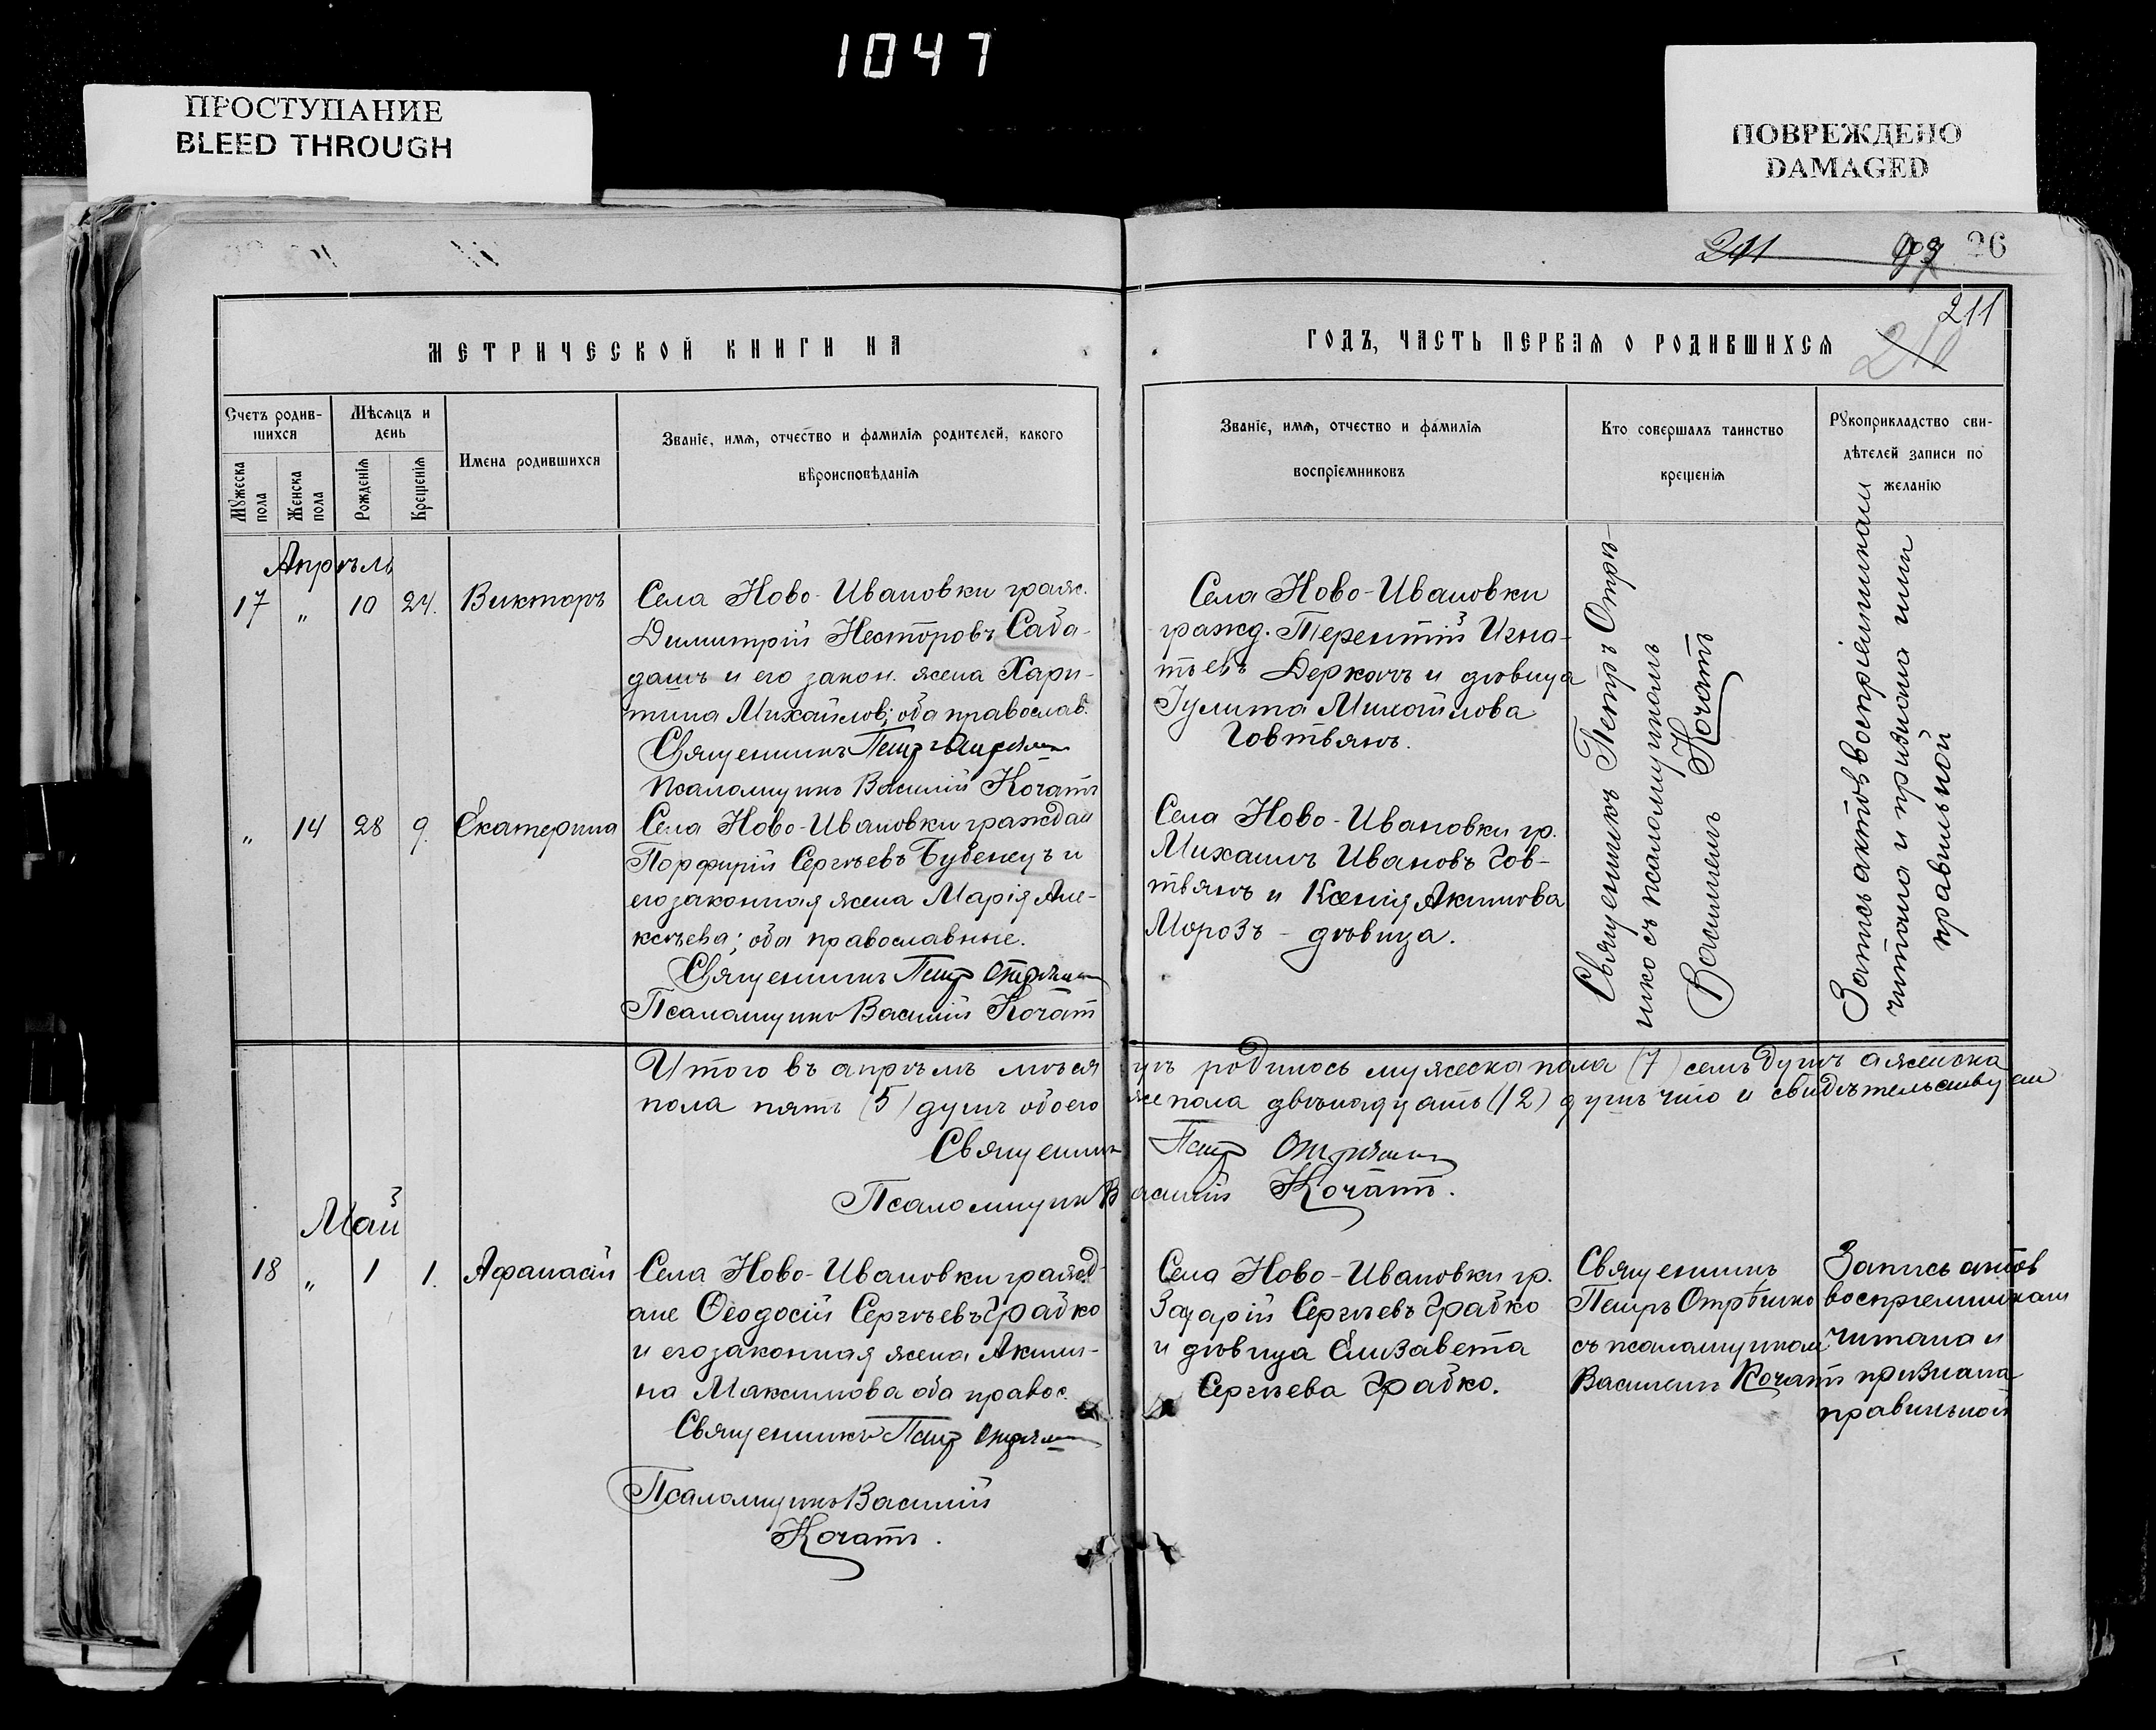 1047
ПРОСТУПАНИЕ
BLEED THROUGH
ПОВРЕЖДЕНО
DAMAGED
211 26
211
МЕТРИЧЕСКОЙ КНИГИ НА
ГОДЪ, ЧАСТЬ ПЕРВАЯ О РОДИВШИХСЯ
Счетъ родив-
шихся
Мужеска пола
Женска пола
Мѣсяцъ и
день
Рожденія
Крещенія
Имена родившихся
Званіе, имя, отчество и фамилія родителей, какого
вѣроисповѣданія
Званіе, имя, отчество и фамилія
воспріемниковъ
Кто совершалъ таинство
крещенія
Рукоприкладство сви-
дѣтелей записи по
желанію
Апрѣль
17 " 10 24. Викторъ
Села Ново-Ивановки граж.
Димитрій Несторовъ Саба-
дашъ и его закон. жена Хари-
тина Михайлов; оба православ.
Священникъ Петр
Псаломщикъ Василій Кочатъ
Села Ново-Ивановки
гражд. Терентій Игна-
тьевъ Деркачъ и дѣвица
Іулита Михайлова
Говтвянъ.
Священникъ Петръ Отрѣ-
шко съ псаломщикомъ
Василіемъ Кочатъ
Запись актовъ воспріемникам
читана и признана ими
правильной
" 14 28 9. Екатерина
Села Ново-Ивановки граждан
Порфирій Сергѣевъ Бубенецъ и
его законная жена Марія Але-
ксѣева; оба православные.
Священникъ Петр
Псаломщикъ Василій Кочат
Села Ново-Ивановки гр.
Михаилъ Ивановъ Гов-
твянъ и Ксенія Акимова
Морозъ - дѣвица.
Итого въ апрѣлѣ мѣсяцѣ родилось мужеска пола (7) семь душъ а женска
пола пять (5) душъ обоего же пола двѣнадцать (12) душъ что и свидѣтельствуем
Священник Петр
Псаломщик Василій Кочатъ.
Май
18 " 1 1. Афанасій
Села Ново-Ивановки гражд-
ане Ѳеодосій Сергѣевъ Грабко
и его законная жена Акили-
на Максимова оба правос.
Священникъ Петр
Псаломщикъ Василій
Кочатъ.
Села Ново-Ивановки гр.
Захарій Сергѣевъ Грабко
и дѣвица Елизавета
Сергѣева Грабко.
Священникъ
Петръ Отрѣшко
съ псаломщиком
Василіемъ Кочатъ
Запись актов
воспріемникам
читана и
признана
правильной